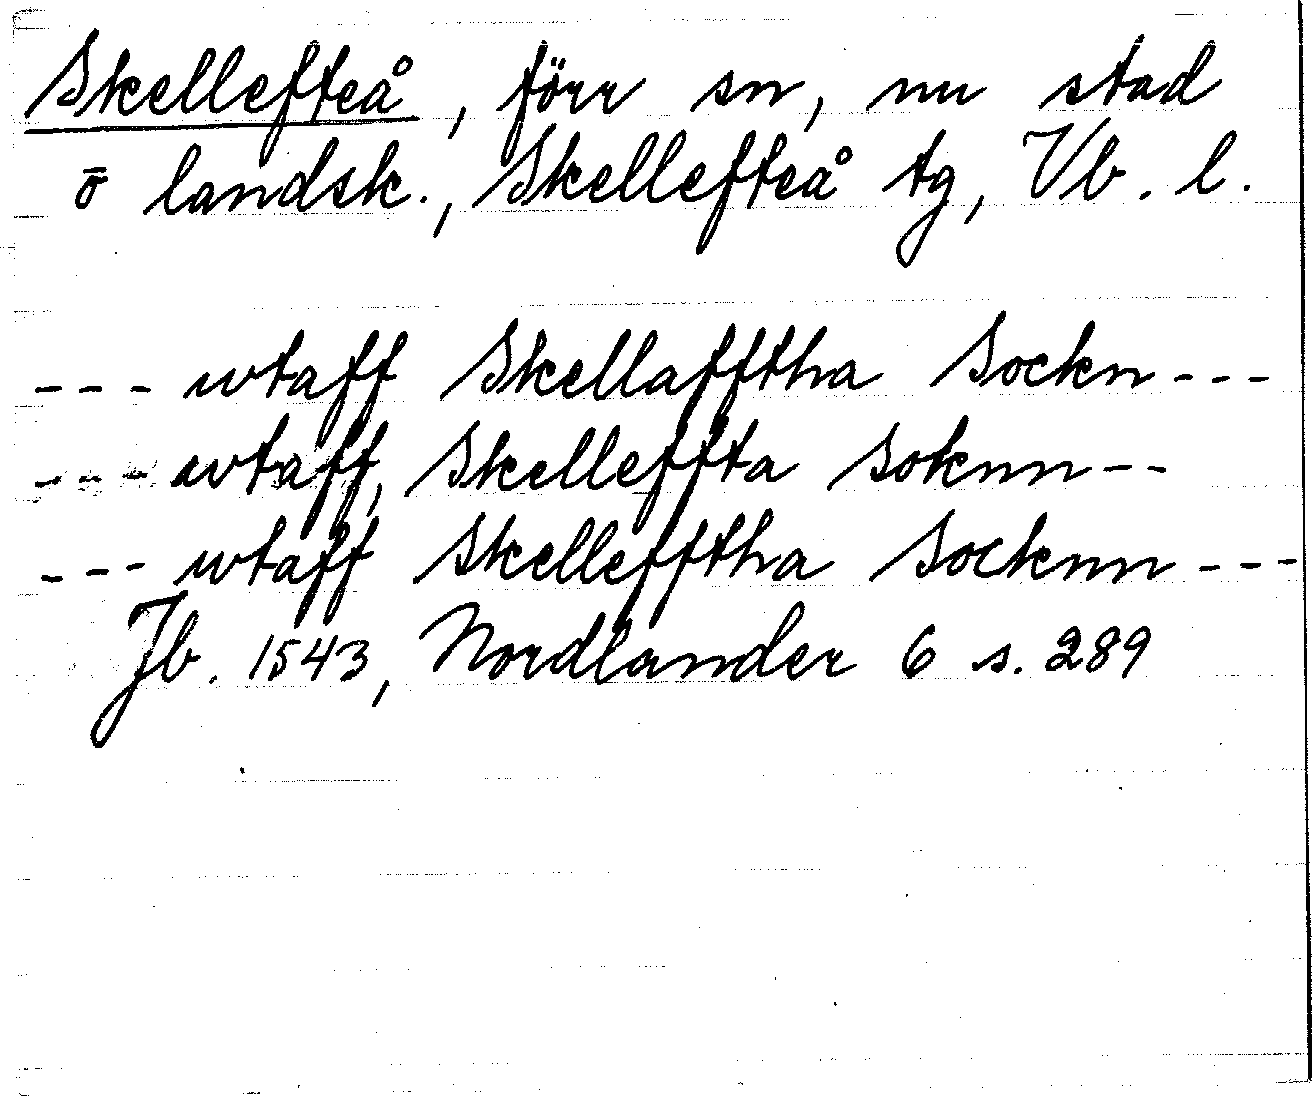 Skellefteå, förr sn, nu stad
o landsk., Skellefteå tg, Vb. l.
--- wtaff Skellafftha Sockn ---
--- wtaff, Skelleffta soknn --
--- wtaff Skellefftha Socknn ---
Jb. 1543, Nordlander 6 s. 289